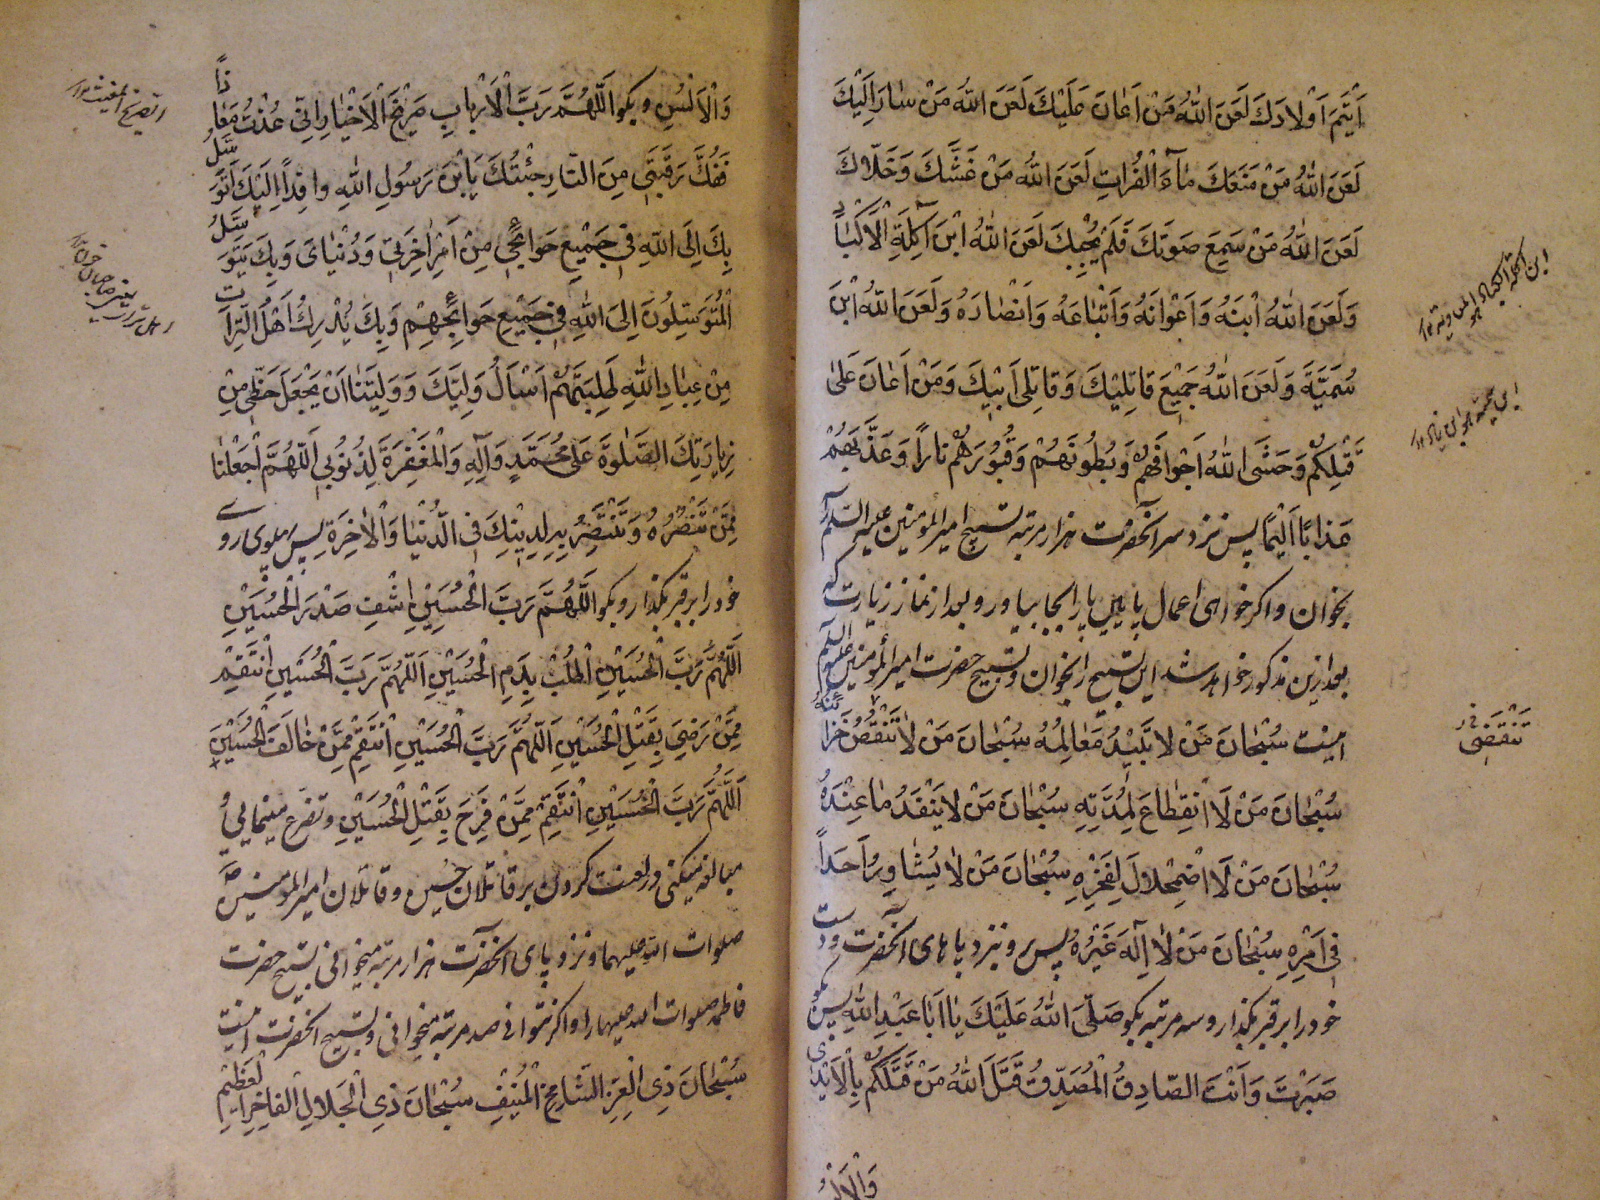 اَيْتَمَ اَوْلادَكَ لَعَنَ اللهُ مَنْ اَعٰانَ عَلَيْكَ لَعَنَ اللهُ مَنْ سٰارَ اِلَيْكَ
لَعَنَ اللهُ مَنْ مَنَعَكَ مٰاءَ الْفُراتِ لَعَنَ اللهُ مَنْ غَشَّكَ وَخَلّاكَ
لَعَنَ اللهُ مَنْ سَمِعَ صَوتَكَ فَلَمْ يُجِبْكَ لَعَنَ اللهُ ابْنَ آكِلَةِ الْاَكْبٰادِ
وَلَعَنَ اللهُ ابْنَهُ وَاَعْوانَهُ وَاَتْبٰاعَهُ وَاَنْصٰارَهُ وَلَعَنَ اللهُ ابْنَ
سُمَيَّةَ وَلَعَنَ اللهُ جَمِيْعَ قاتِلِيْكَ وَقاتِلى اَبِيْكَ وَمَنْ اَعٰانَ عَلىٰ
قَتْلِكُمْ وَحَشَى اللهُ اَجْوافَهُمْ وَبُطُونَهُمْ وَقُبُورَهُمْ ناراً وَعَذَّبَهُمْ
عَذاباً اَلِيْماً پس نزد سر آنحضرت هزار مرتبه تسبیح امیرالمؤمنین علیه السّلم را
بخوان واکر خواهی اعمال پایین پا را بجا بیاور و بعد از نماز زیارت که
بعد ازین مذکور خواهد شد این تسبیح را بخوان و تسبیح حضرت امیرالمؤمنین علیه السلم
اینست سُبْحٰانَ مَنْ لا تَبِيْدُ مَعٰالِمُهُ سُبْحٰانَ مَنْ لا تَنْقُصُ خَزائِنُهُ
سُبْحٰانَ مَنْ لَا انْقِطٰاعَ لِمُدَّتِهِ سُبْحٰانَ مَنْ لا يَنْفَدُ ماعِنْدَهُ
سُبْحٰانَ مَنْ لَا اضْمِحْلالَ لِفَخْرِهِ سُبْحٰانَ مَنْ لا يُشٰاوِرُ اَحَداً
فى اَمْرِهِ سُبْحٰانَ مَنْ لا اِلٰهَ غَيْرُهُ پس برو بنزد پاهای آنحضرت و دست
خود را بر قبر بگذار و سه مرتبه بگو صَلَّى اللهُ عَلَيْكَ يا اَبا عَبْدِ اللهِ پس بگو
صَبَرْتَ وَاَنْتَ الصّادِقُ الْمُصَدِّقُ قَتَلَ اللهُ مَنْ قَتَلَكُمْ بِالْاَيْدى
وَالْاَلْسُ
ابن آكلة الاكباد
تَنْقَضى
وَالْاَلْسُنِ وبگو اَللّٰهُمَّ رَبَّ الْاَرْبابِ صَرِيْخَ الْاَخْيارِ اِنّى عُذْتُ مَعٰاذاً
فَفُكَّ رَقَبَتى مِنَ النّارِ جِئْتُكَ يَابْنَ رَسُولِ اللهِ وافِداً اِلَيْكَ اَتَوَسَّلُ
بِكَ اِلَى اللهِ فى جَمِيْعِ حَوائِجى مِنْ اَمْرِ اٰخِرَتى وَدُنْياىَ وَبِكَ يَتَوَسَّلُ
الْمُتَوَسِّلُونَ اِلَى اللهِ فى جَمِيْعِ حَوائِجِهِمْ وَبِكَ يُدْرِكُ اَهْلُ التِّراتِ
مِنْ عِبٰادِ اللهِ طَلِبَتَهُمْ اَسْاَلُ وَلِيَّكَ وَوَلِيَّنا اَنْ يَجْعَلَ حَظّى مِنْ
زِيارَتِكَ الصَّلوةَ عَلى مُحَمَّدٍ وَآلِهِ وَالْمَغْفِرَةَ لِذُنُوبى اَللّٰهُمَّ اجْعَلْنا
مِمَّنْ تَنْصُرُهُ وَتَنْتَصِرُ بِهِ لِدِيْنِكَ فِى الدُّنْيا وَالْاٰخِرَةِ پس پهلوی روے
خود را بر قبر بگذار و بگو اَللّٰهُمَّ رَبَّ الْحُسَيْنِ اِشْفِ صَدْرَ الْحُسَيْنِ
اَللّٰهُمَّ رَبَّ الْحُسَيْنِ اُطْلُبْ بِدَمِ الْحُسَيْنِ اَللّٰهُمَّ رَبَّ الْحُسَيْنِ اِنْتَقِمْ
مِمَّنْ رَضِىَ بِقَتْلِ الْحُسَيْنِ اَللّٰهُمَّ رَبَّ الْحُسَيْنِ انْتَقِمْ مِمَّنْ خٰالَفَ الْحُسَيْنِ
اَللّٰهُمَّ رَبَّ الْحُسَيْنِ انْتَقِمْ مِمَّنْ فَرِحَ بِقَتْلِ الْحُسَيْنِ وتضرّع مینمایی و
مبالغه میکنی در لعنت کردن بر قاتلان حسین و قاتلان امیرالمؤمنین
صلوات الله علیهما و نزد پای آنحضرت هزار مرتبه میخوانی تسبیح حضرت
فاطمه صلوات الله علیها را و اکر نتوانی صد مرتبه میخوانی و تسبیح آنحضرت اینست
سُبْحٰانَ ذِى الْعِزِّ الشّامِخِ الْمُنِيْفِ سُبْحٰانَ ذِى الْجَلالِ الْفاخِرِ الْعَظِيْمِ